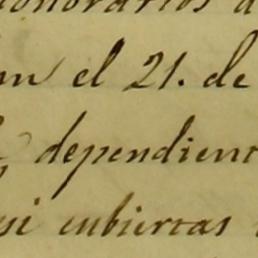 honorarios d
en el 21. de
dependient
si cubiertas